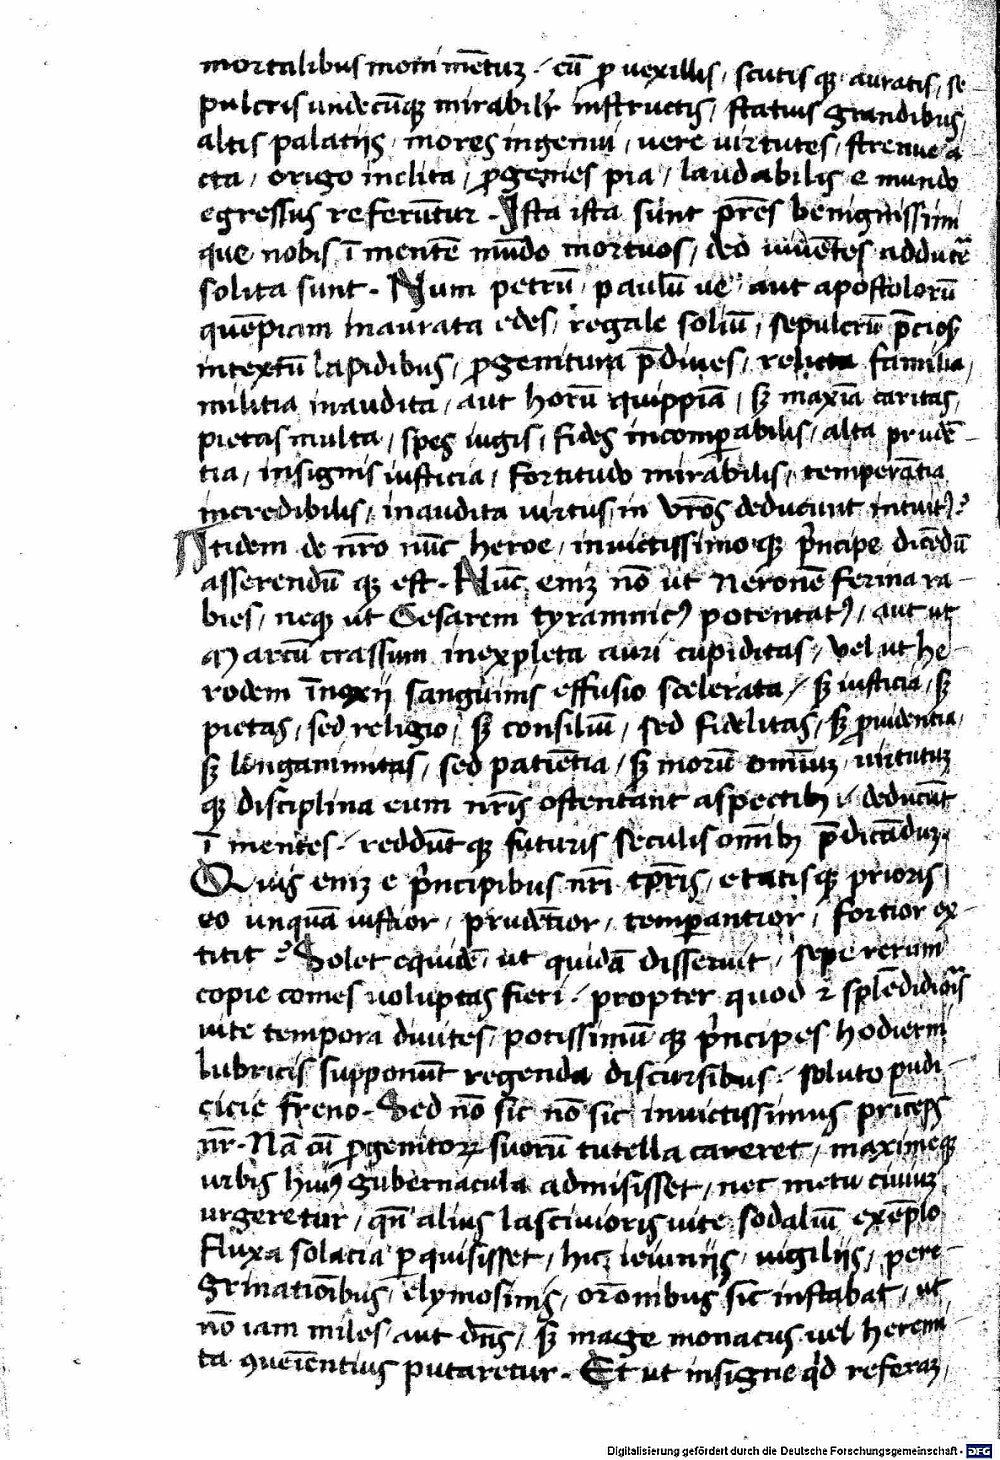 mortalibus moni mẽtuʒ / cũ ꝓ vexillis / scutis qʒ auratis / se-
pulcris undecũqʒ mirabilr̃ instructis / statuis grandibus /
altis palatijs / mores ingenui / vere virtutes / strenue a-
cta / origo inclita / ꝓgenies pia / laudabilis e mundo
egressus referũtur . Ista ista sunt pr̃es benignissimi
que nobis ĩ mentẽ mũdo mortuos / deo uiuẽtes adducẽ
solita sunt . Num petrũ / paulũ ue / aut apostolorũ
quẽpiam inaurata edes / regale soliũ / sepulcrũ p̃ciosʒ
intextũ lapidibus / ꝓgenitura p̃diues / relicta familia /
militia inaudita / aut horũ quippiã / sʒ maxĩa caritas /
pietas multa / spes iugis / fides incomꝑabilis / alta prudẽ-
tia / insignis iusticia / fortitudo mirabilis / temperãtia
incredibilis / inaudita uirtus / in vr̃os deducunt intuitꝰ ?
Itidem de nr̃o nũc heroe / inuictissimo qʒ p̃ncipe dicẽdũ
asserendũ qʒ est . Nũc eniʒ nõ ut neronẽ ferina ra-
bies / neqʒ ut Cesarem tyrannicꝰ potentatꝰ / aut ut
Marcũ crassum inexpleta auri cupiditas / vel ut he-
rodem ĩnoxij sanguinis effusio scelerata / sʒ iusticia / sʒ
pietas / sed religio / sʒ consiliũ / sed fidelitas / sʒ ꝓuidentia /
sʒ longanimitas / sed patiẽtia / sʒ morũ omniuʒ / uirtutuʒ
qʒ disciplina eum nr̃is ostentant aspectibꝫ / deducũt
ĩ mentes / reddũt qʒ futuris seculis om̃ibꝫ p̃dicãduʒ .
Quis eniʒ e p̃ncipibus nr̃i tp̃ris / etatis qʒ prioris /
eo unquã iustior / prudẽtior / temperantior / fortior ex-
titit ? Solet equidẽ / ut quidã disseruit / sepe rerum
copie comes uoluptas fieri / propter quod ⁊ splẽdidioris
uite tempora diuites / potissimũ qʒ p̃ncipes hodierni
lubricis supponũt regenda discursibus / soluto pudi-
cicie freno . Sed nõ sic nõ sic inuictissimus princeps
nr̃ . Nã cũ ꝓgenitoꝝ suorũ tutella careret / maximeqʒ
urbis huiꝰ gubernacula admisisset / nec metu ciuiuʒ
urgeretur / qñ alius lasciuioris uite sodaliũ exẽplo
fluxa solacia ꝑquisisset / hic ieiunijs / uigilijs / pere-
grinatiõibus / elymosinis / or̃onibus sic instabat / ut
nõ iam miles aut dñs / sʒ mage monacus uel heremi-
ta ꝯueniẽtius putaretur . Et ut insigne qͥd referaʒ /
Digitalisierung gefördert durch die Deutsche Forschungsgemeinschaft - DFG